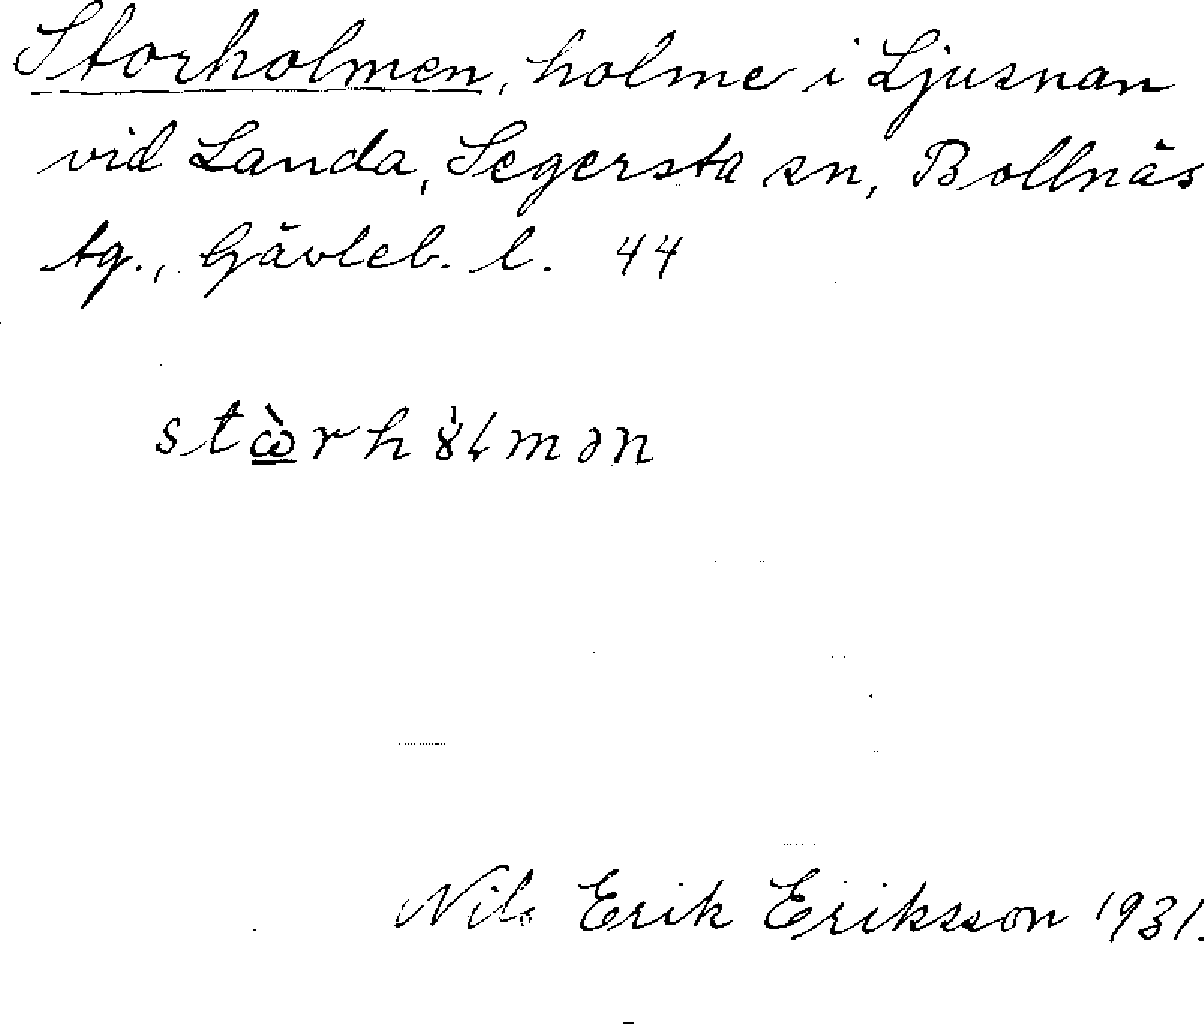 Storholmen, holme i Ljusnan
vid Landa, Segersta sn, Bollnäs
tg., Gävleb. l. 44
Nils Erik Eriksson 1931.